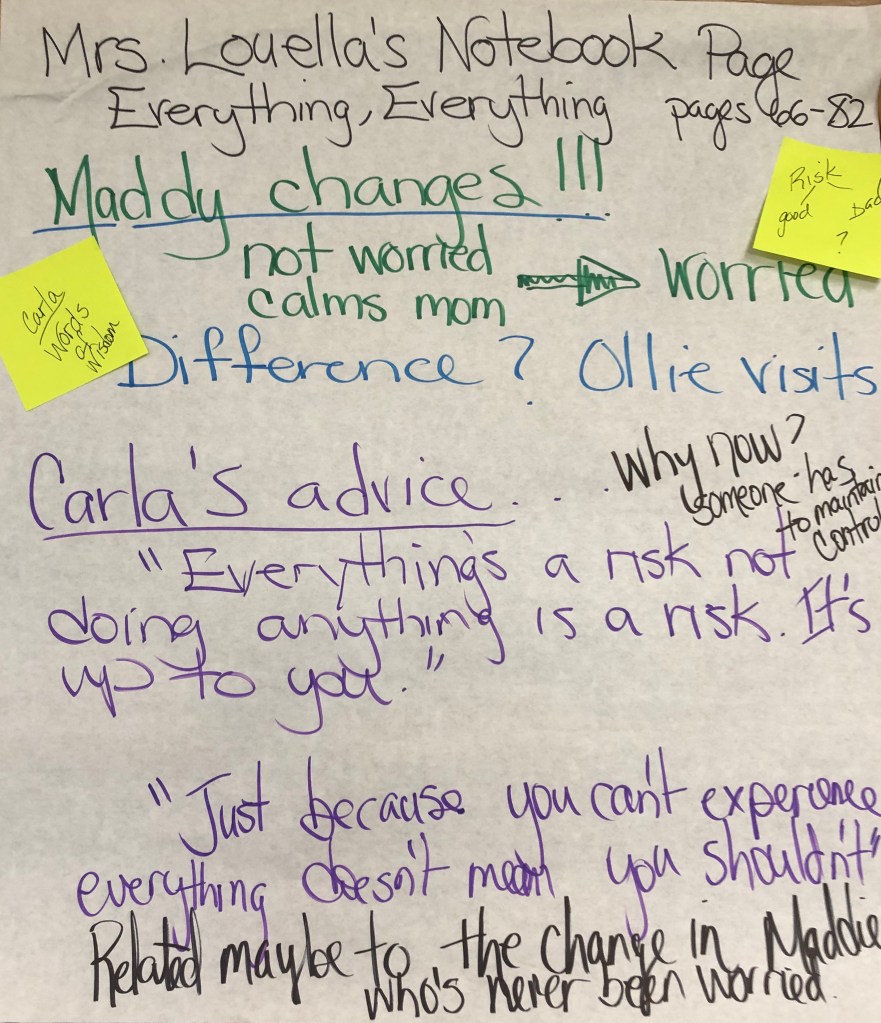 Mrs. Louella's Notebook Page
Everything, Everything pages 66-82
Maddy changes!!!
Risk
good Bad
?
not worried
calms mom
worried
Carla
Words
of
Wisdom
Difference? Ollie visits
Carla's advice . . . .
Why now?
Someone has
to maintain
control
"Everything's a risk not
doing anything is a risk. It's
up to you."
"Just because you can't experience
everything doesn't mean you shouldn't"
Related maybe to the change in Maddie
who's never been worried.